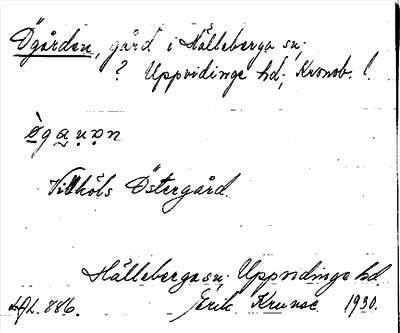 Ögården, gård i Hälleberga sn;
? Uppvidinge hd; Kronob. l.
ö̀gau̯ạn
Vithöls Östergård.
Hälleberga sn; Uppvidinge hd.
Erik Kruuse 1930.